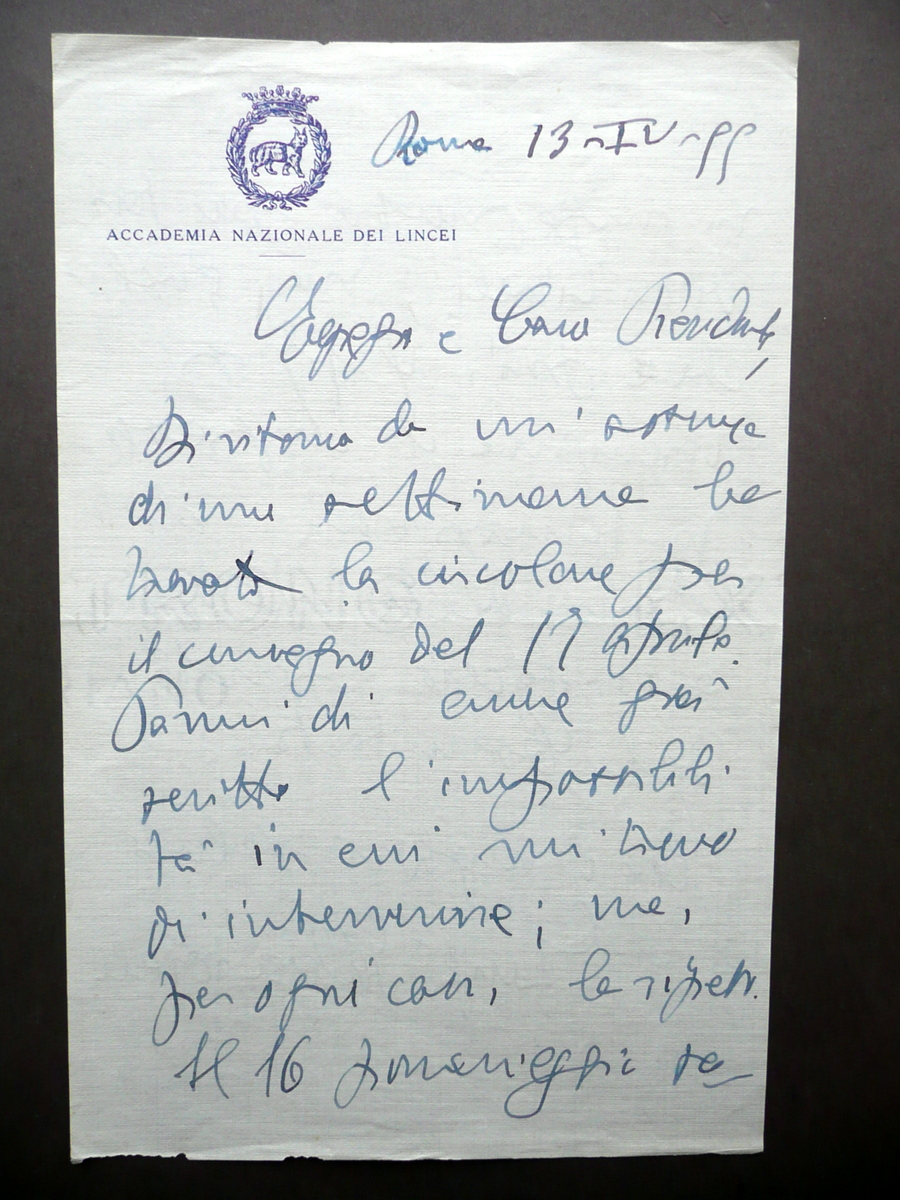 Roma 13-IV-55
ACCADEMIA NAZIONALE DEI LINCEI
Egregio e Caro Presidente,
Di ritorno da un'assenza
di una settimana ho
trovato la circolare per
il convegno del 17
Parmi di avere già
scritto l'impossibili
tà in cui mi trovo
di intervenire; ma,
per ogni caso, lo ripeto.
Il 16 pomeriggio sa